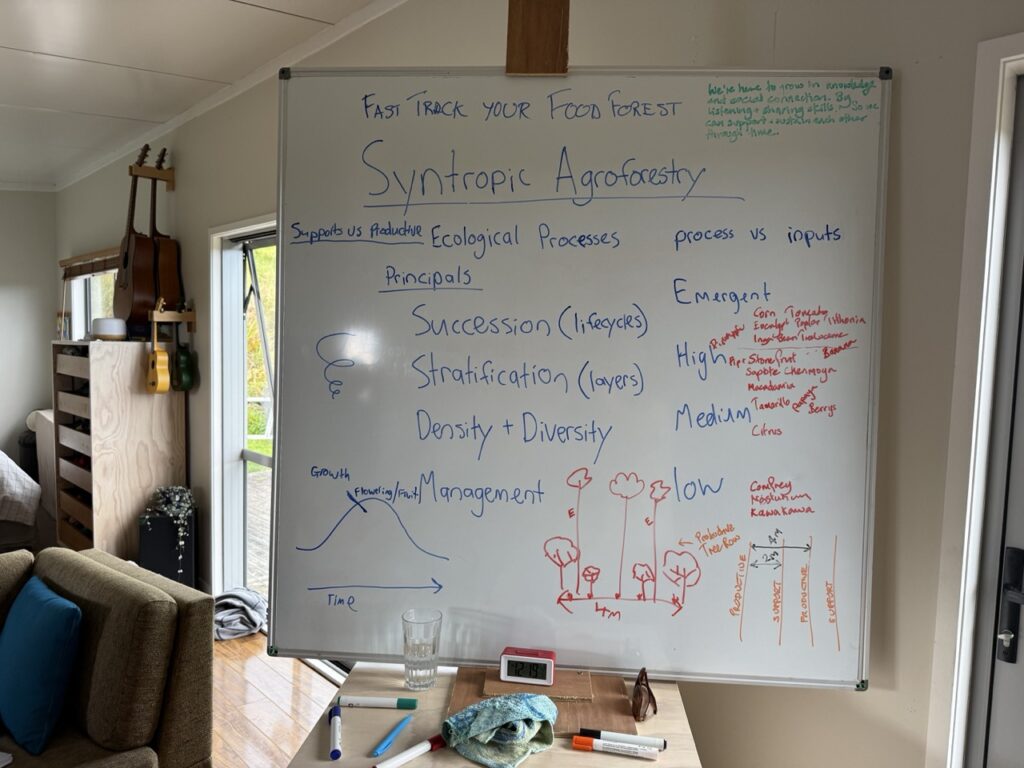 FAST TRACK YOUR FOOD FOREST
We've have to grow in knowledge
and social connection. By
listening + sharing skills. So we
can support + sustain each other
through time.
Syntropic Agroforestry
Supports vs Productive
Ecological Processes
process vs inputs
Principals
Succession (lifecycles)
Stratification (layers)
Density + Diversity
Management
Emergent
Corn
Eucalypt Poplar Tithonia
High
Banana
Stonefruit
Sapote Cherimoya
Macadamia
Medium
Tamarillo Papaya Berrys
Citrus
low
Comfrey
Nasturtium
Kawakawa
Growth
Flowering/Fruit
Time
E
E
4M
Productive
Tree Row
PRODUCTIVE
SUPPORT
PRODUCTIVE
SUPPORT
12:19